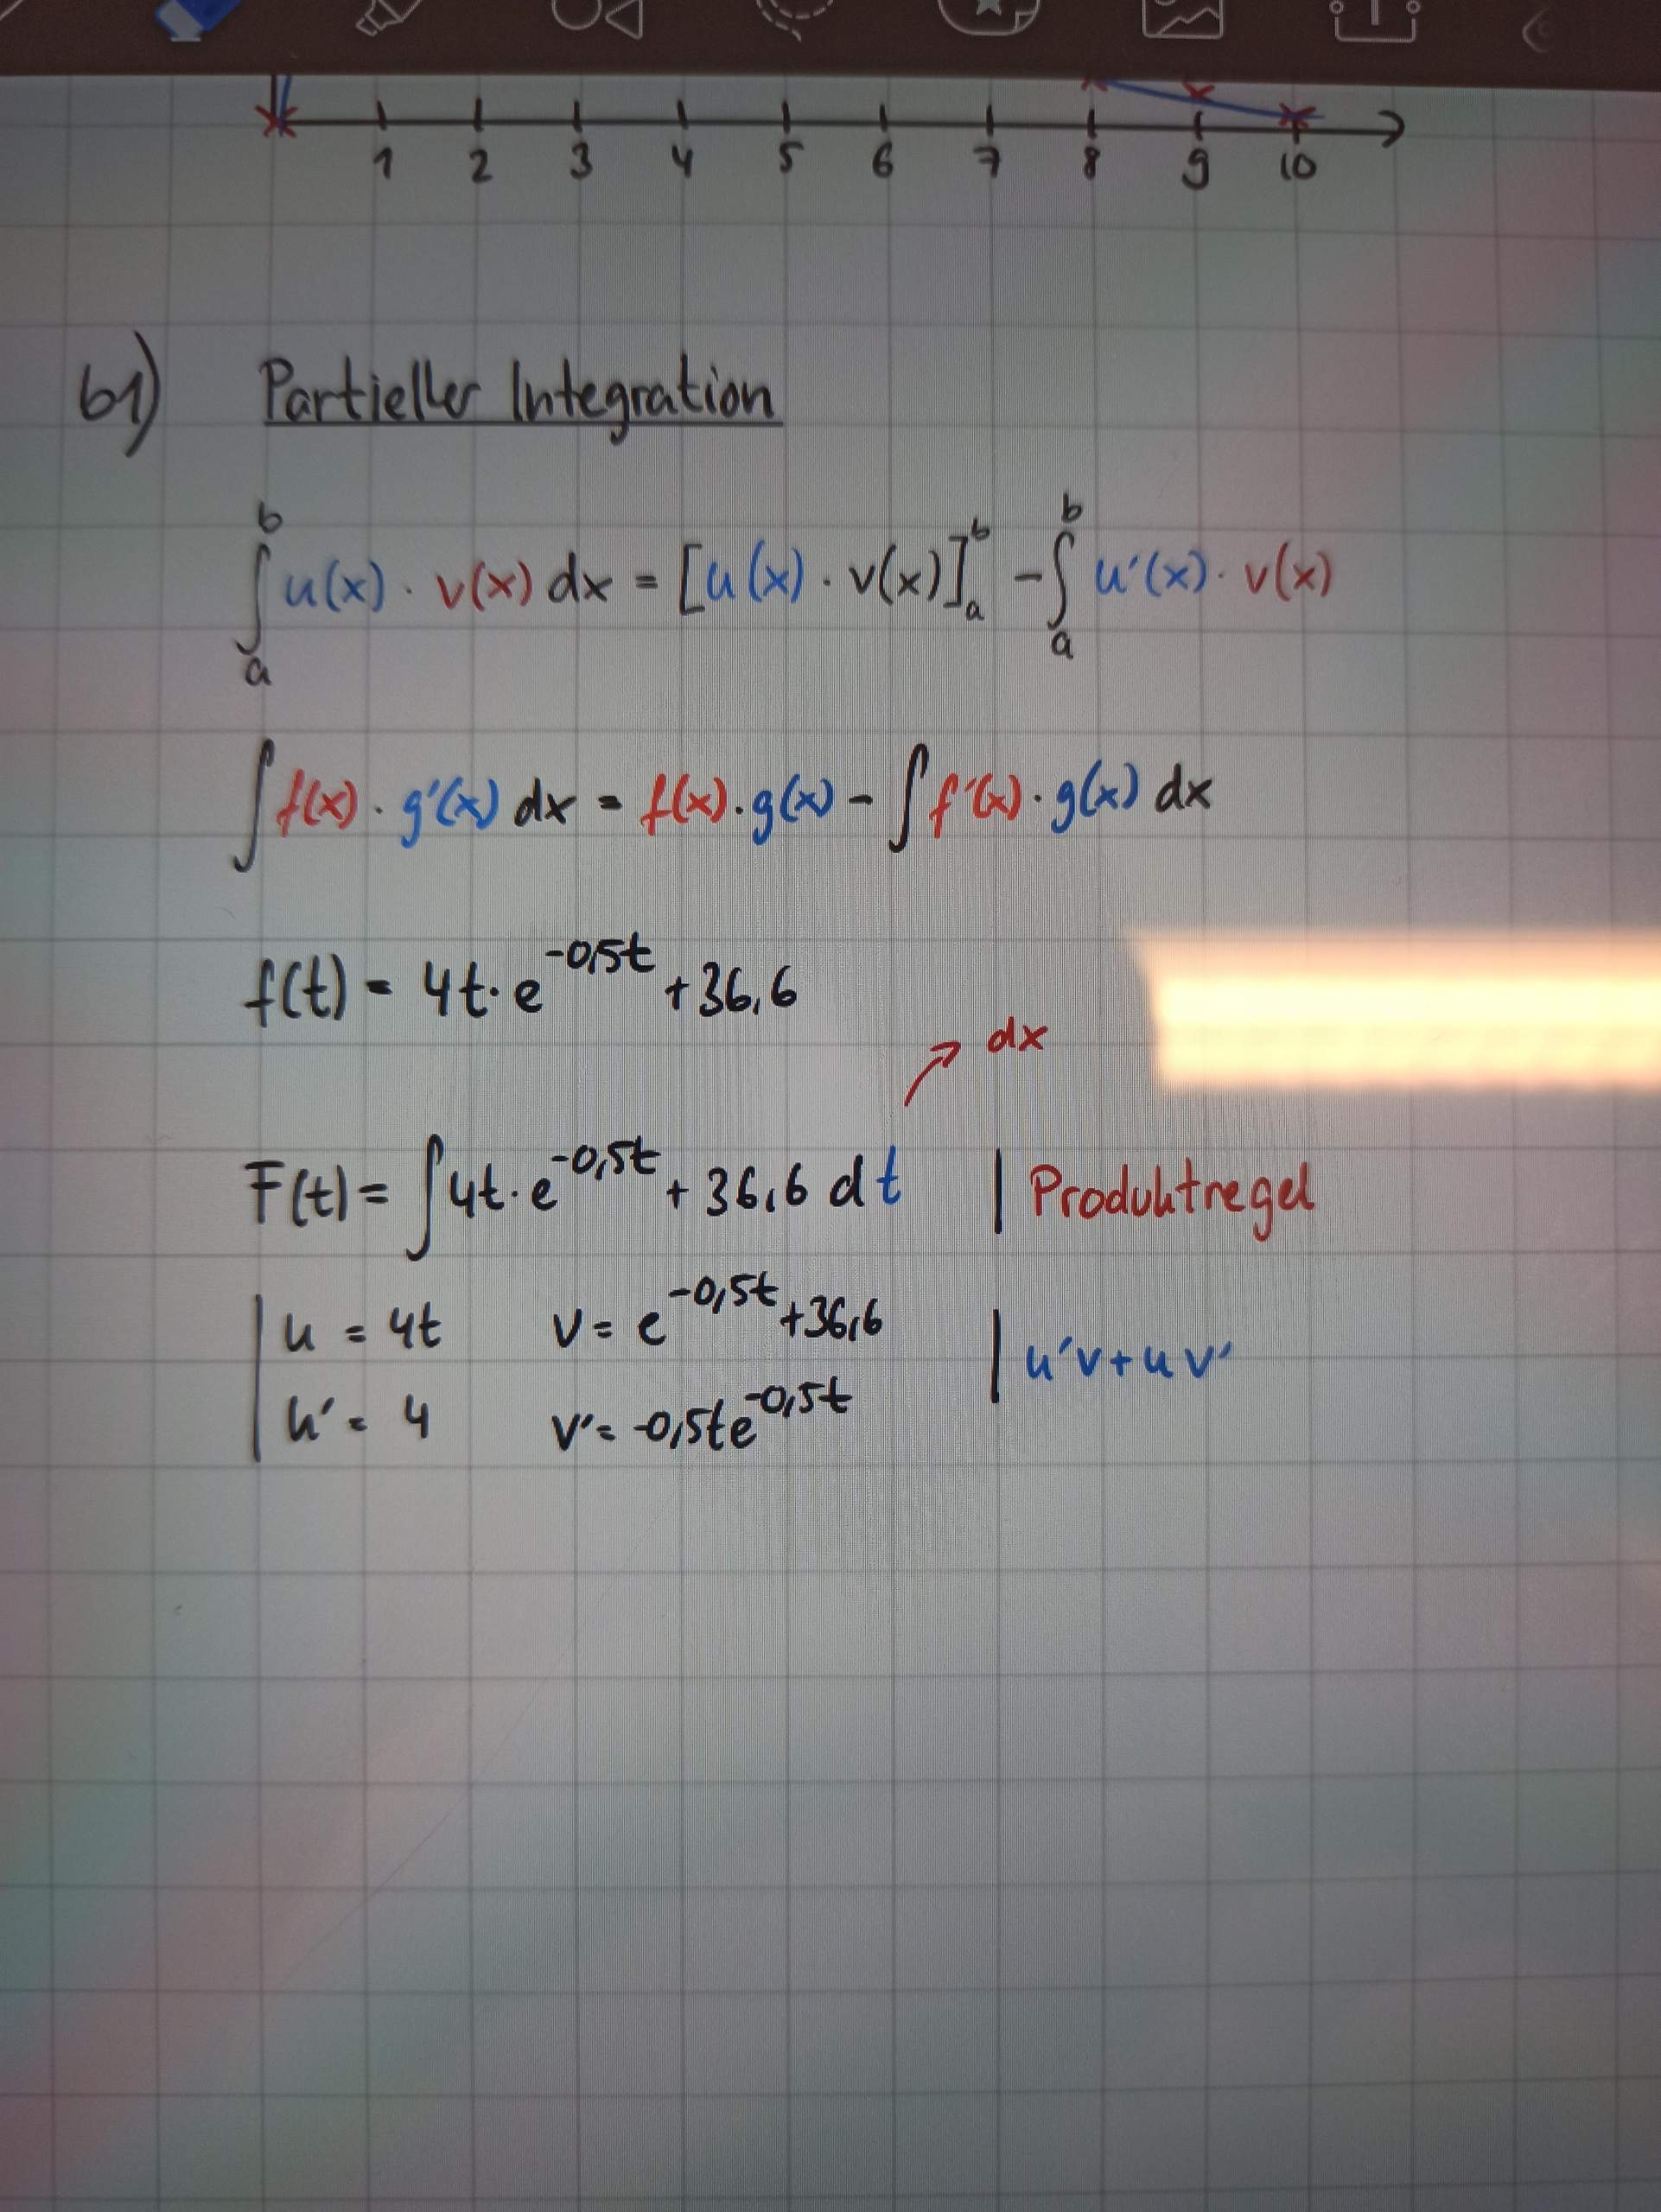 1 2 3 4 5 6 7 8 9 10
b1) Partieller Integration
∫ₐᵇ u(x) · v(x) dx = [u(x) · v(x)]ₐᵇ - ∫ₐᵇ u'(x) · v(x)
∫ f(x) · g'(x) dx = f(x) · g(x) - ∫ f'(x) · g(x) dx
f(t) = 4t · e^(-0,5t) + 36,6
dx
F(t) = ∫ 4t · e^(-0,5t) + 36,6 dt | Produktregel
| u = 4t v = e^(-0,5t) + 36,6 | u'v + uv'
| u' = 4 v' = -0,5te^(-0,5t)